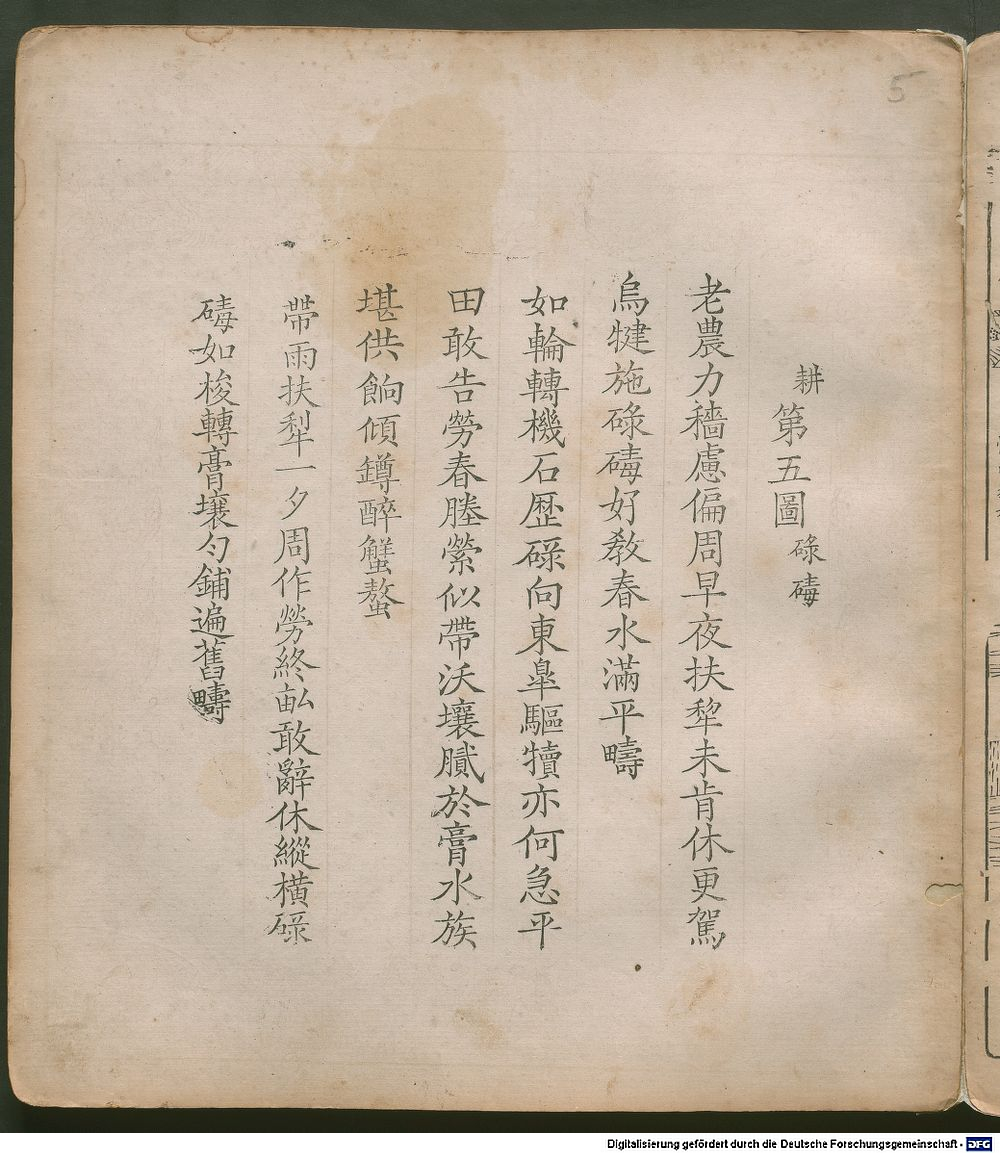 5
耕
第五圖
碌碡
老農力穡慮偏周早夜扶犂未肯休更駕
烏犍施碌碡好敎春水滿平疇
如輪轉機石歷碌向東臯驅犢亦何急平
田敢告勞春塍縈似帶沃壤膩於膏水族
堪供餉傾罇醉蟹螯
帶雨扶犂一夕周作勞終畝敢辭休縱橫碌
碡如梭轉膏壤勻鋪遍舊疇
Digitalisierung gefördert durch die Deutsche Forschungsgemeinschaft - DFG